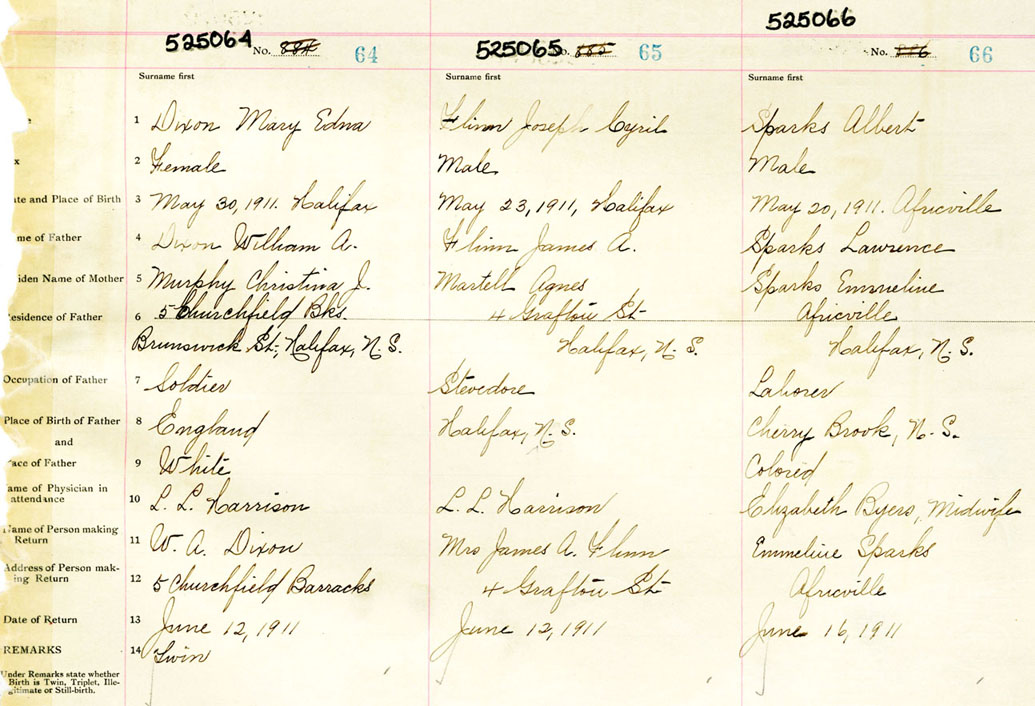 525066
525064 No. 884 64 525065 No. 885 65 No. 886 66
Surname first Surname first Surname first
1 Dixon Mary Edna Flinn Joseph Cyril Sparks Albert
2 Female Male Male
ate and Place of Birth 3 May 30, 1911. Halifax May 23, 1911, Halifax May 20, 1911. Africville
me of Father 4 Dixon William A. Flinn James A. Sparks Lawrence
iden Name of Mother 5 Murphy Christina J. Martell Agnes Sparks Emmeline
esidence of Father 6 5 Churchfield Bks. 4 Grafton St Africville
Brunswick St; Halifax, N.S. Halifax, N.S. Halifax, N.S.
Occupation of Father 7 Soldier Stevedore Laborer
Place of Birth of Father 8 England Halifax, N.S. Cherry Brook, N.S.
and
ace of Father 9 White Colored
ame of Physician in
attendance 10 L. L. Harrison L. L. Harrison Elizabeth Byers, Midwife
Name of Person making
Return 11 W. A. Dixon Mrs James A. Flinn Emmeline Sparks
Address of Person mak-
ing Return 12 5 Churchfield Barracks 4 Grafton St Africville
Date of Return 13 June 12, 1911 June 12, 1911 June 16, 1911
REMARKS 14 Twin
Under Remarks state whether
Birth is Twin, Triplet, Ille-
gitimate or Still-birth.